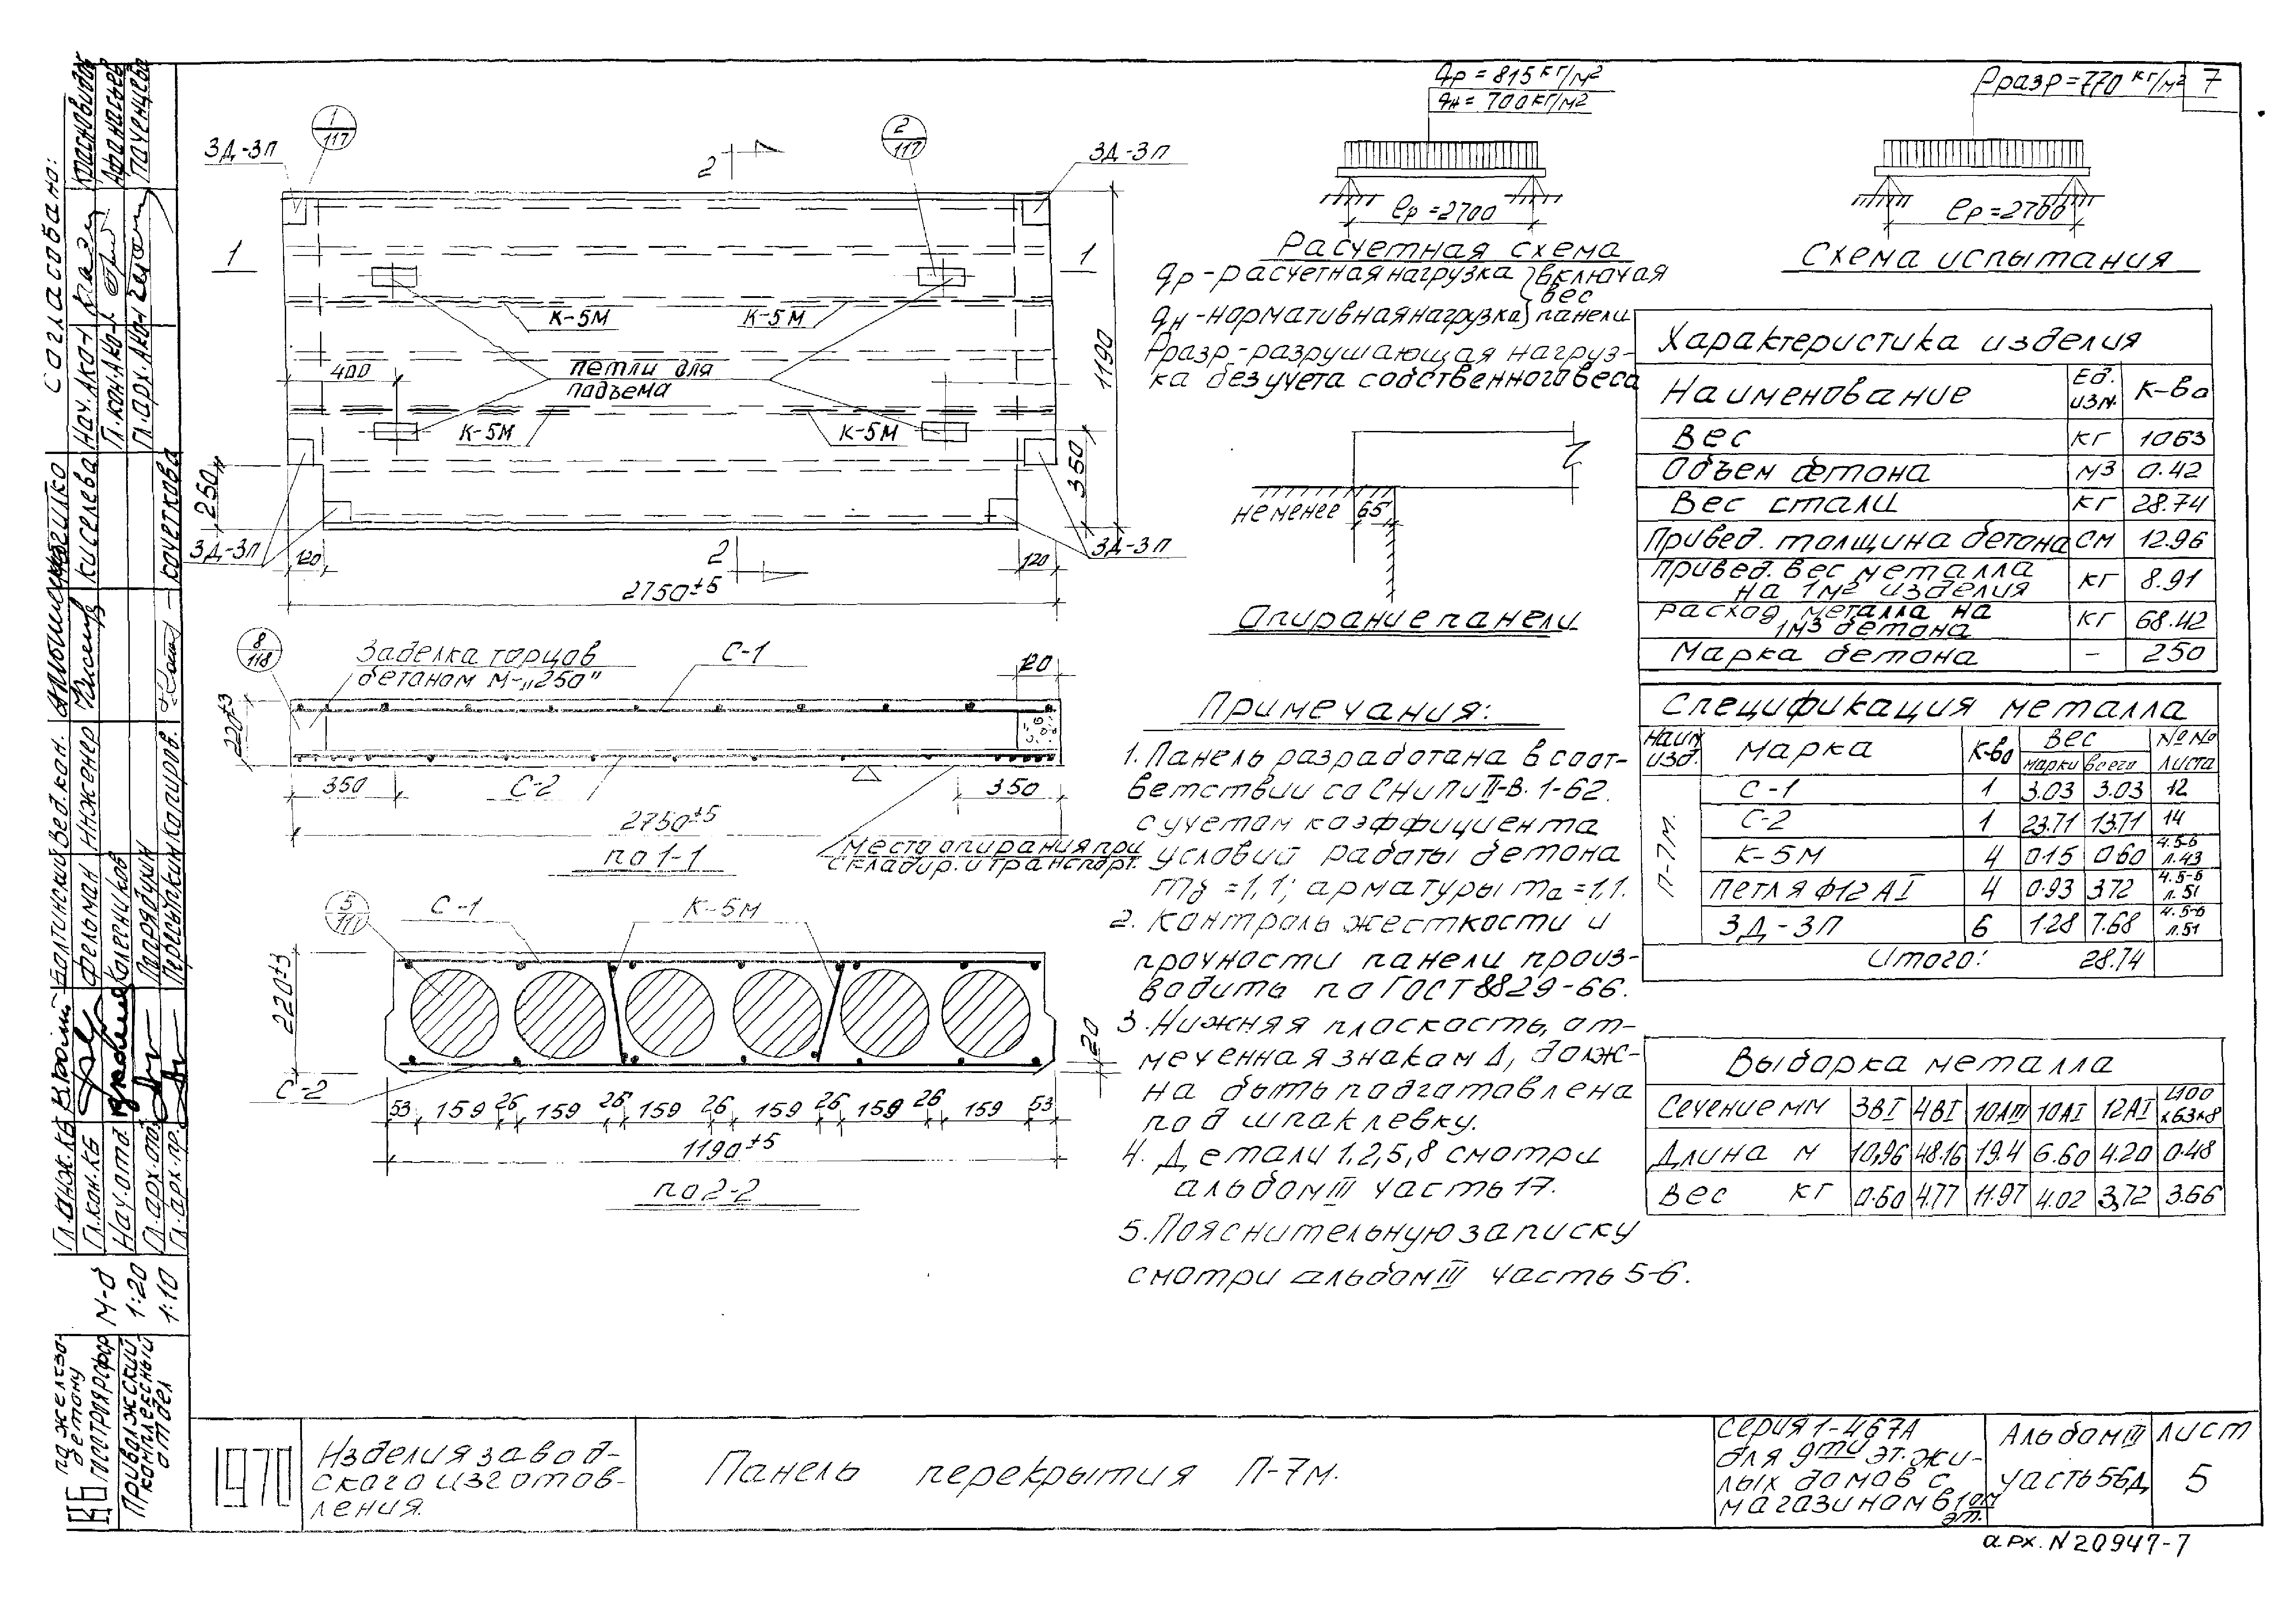 qр = 815 кг/м²
qн = 700 кг/м²
Рразр = 770 кг/м²
7
ℓр = 2700
Расчетная схема
ℓр = 2700
Схема испытания
qр - расчетная нагрузка } включая
вес
qн - нормативная нагрузка } панели
Рразр. - разрушающая нагруз-
ка без учета собственного веса
1
117
2
117
ЗД-3П
ЗД-3П
2
1
1
К-5М
К-5М
петли для
подъема
400
К-5М
К-5М
1190
350
250
ЗД-3П
ЗД-3П
120
120
2
2750±5
не менее
65
Опирание панели
8
118
Заделка торцов
бетоном М-„250"
С-1
120
220±3
350
С-2
350
2750±5
по 1-1
место опирания при
складир. и транспорт.
5
117
С-1
К-5М
220±3
20
С-2
53 159 26 159 26 159 26 159 26 159 26 159 53
1190±5
по 2-2
Примечания:
1. Панель разработана в соот-
ветствии со СНиПи II-В. 1-62.
с учетом коэффициента
условий работы бетона
mб = 1,1; арматуры mа = 1,1.
2. Контроль жесткости и
прочности панели произ-
водить по ГОСТ 8829-66.
3. Нижняя плоскость, от-
меченная знаком Δ, долж-
на быть подготовлена
под шпаклевку.
4. Детали 1,2,5,8 смотри
альбом III часть 17.
5. Пояснительную записку
смотри альбом III часть 5-6.
Характеристика изделия
Наименование Ед. изм. К-во
Вес кг 1063
Объем бетона м3 0.42
Вес стали кг 28.74
Привед. толщина бетона см 12.96
Привед. вес металла
на 1м² изделия кг 8.91
Расход металла на
1м3 бетона кг 68.42
Марка бетона - 250
Спецификация металла
Наим. изд. Марка К-во Вес №№
марки всего листа
П-7М.
С-1 1 3.03 3.03 12
С-2 1 23.71 13.71 14
К-5М 4 0.15 0.60 ч.5-6 л.43
Петля Ф12АI 4 0.93 3.72 ч.5-6 л.51
ЗД-3П 6 1.28 7.68 ч.5-6 л.51
Итого: 28.74
Выборка металла
Сечение мм 3ВI 4ВI 10АIII 10АI 12АI L100х63х8
Длина м 10,96 48.16 19.4 6.60 4.20 0.48
Вес кг 0.60 4.77 11.97 4.02 3,72 3.66
Согласовано:
Нач. АКО-1
Красновидов
Гл. кон. АКО-1
Афанасьев
Гл. арх. АКО-1
Паченцева
Гл. инж. КБ
Гл. кон. КБ
Нач. отд.
Колесников
Гл. арх. отд.
Напрядухин
Гл. арх. пр.
Пересыпкин
Болтинский
Фельман
Вед. кон.
Инженер
Киселева
Копиров.
Кочеткова
М-б
1:20
1:10
КБ
по железо-
бетону
Госстроя РСФСР
Приволжский
комплексный
отдел
1970
Изделия завод-
ского изготов-
ления.
Панель перекрытия П-7м.
Серия 1-467А
для 9ти эт. жи-
лых домов с
магазином в 1ом
эт.
Альбом III
часть 5-6д
Лист
5
арх. N 20947-7